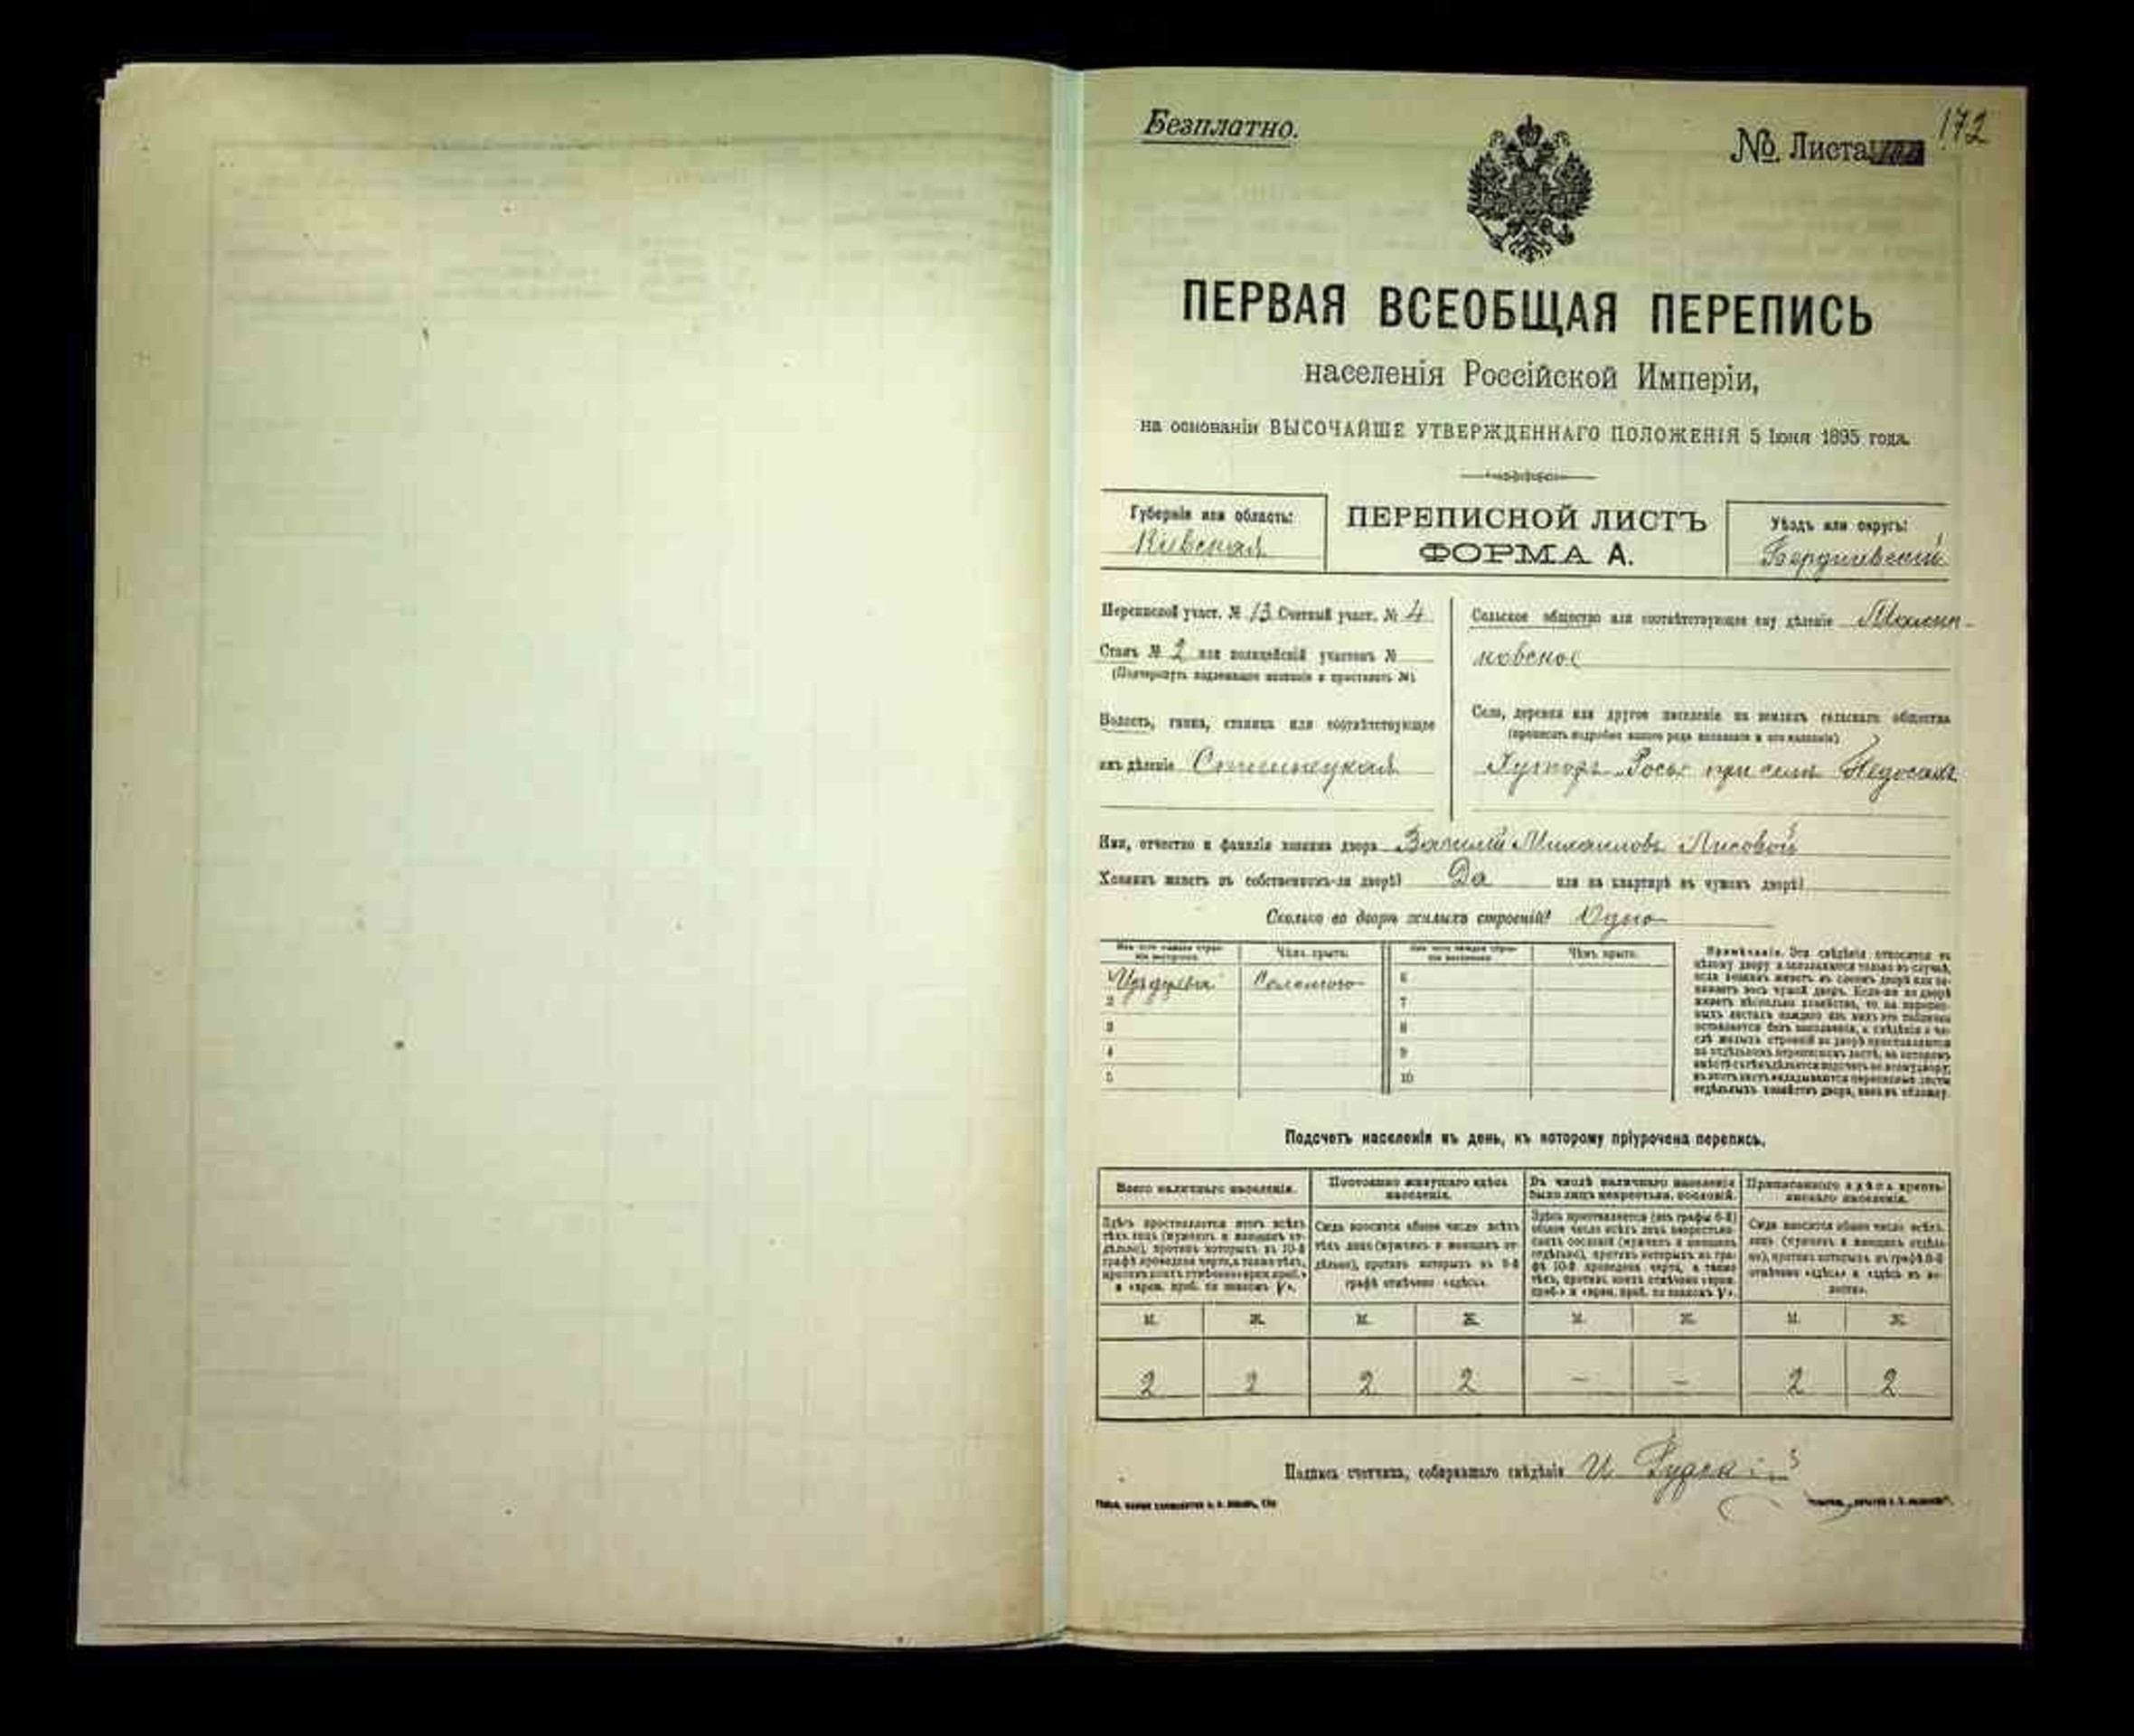 Безплатно.
№ Листа
172
ПЕРВАЯ ВСЕОБЩАЯ ПЕРЕПИСЬ
населенія Россійской Имперіи,
на основаніи ВЫСОЧАЙШЕ УТВЕРЖДЕННАГО ПОЛОЖЕНІЯ 5 Іюня 1895 года.
Губернія или область:
Кіевская
ПЕРЕПИСНОЙ ЛИСТЪ
ФОРМА А.
Уѣздъ или округъ:
Бердичевскій
Переписной участ. № 13 Счетный участ. № 4
Станъ № 2 или полицейскій участокъ №
(Подчеркнуть надлежащее названіе и проставить №).
Волость, гмина, станица или соотвѣтствующее
имъ дѣленіе
Сельское общество или соотвѣтствующее ему дѣленіе
новское
Село, деревня или другое поселеніе на земляхъ сельскаго общества
(прописать подробно какого рода поселеніе и его названіе)
Хуторъ „Рось" при селѣ
Имя, отчество и фамилія хозяина двора Василій Михаиловъ Лисовой
Хозяинъ живетъ въ собственномъ-ли дворѣ? Да или на квартирѣ въ чужомъ дворѣ?
Сколько во дворѣ жилыхъ строеній? Одно
Чѣмъ крыто.
Чѣмъ крыто.
Изъ дерева Соломою
6
2
7
3
8
4
9
5
10
Примѣчаніе. Эти свѣдѣнія относятся къ
цѣлому двору и заполняются только въ случаѣ,
если хозяинъ живетъ въ своемъ дворѣ или за-
нимаетъ весь чужой дворъ. Если-же во дворѣ
живетъ нѣсколько хозяйствъ, то на перепис-
ныхъ листахъ каждаго изъ нихъ эта табличка
оставляется безъ заполненія, а свѣдѣнія о чи-
слѣ жилыхъ строеній во дворѣ проставляются
на отдѣльномъ переписномъ листѣ, на которомъ
вмѣстѣ съ тѣмъ дѣлается подсчетъ по всему двору;
въ этотъ листъ вкладываются переписные листы
отдѣльныхъ хозяйствъ двора, какъ въ обложку.
Подсчетъ населенія въ день, къ которому пріурочена перепись.
Всего наличнаго населенія.
Постоянно живущаго здѣсь
населенія.
Въ числѣ наличнаго населенія
было лицъ некрестьян. сословій.
Приписаннаго здѣсь кресть-
янскаго населенія.
Здѣсь проставляется итогъ всѣхъ
тѣхъ лицъ (мужчинъ и женщинъ от-
дѣльно), противъ которыхъ въ 10-й
графѣ проведена черта, а также тѣхъ,
противъ коихъ отмѣчено «врем. преб.»
и «врем. преб. со знакомъ V».
Сюда вносится общее число всѣхъ
тѣхъ лицъ (мужчинъ и женщинъ от-
дѣльно), противъ которыхъ въ 9-й
графѣ отмѣчено «здѣсь».
Здѣсь проставляется (изъ графы 6-й)
общее число всѣхъ лицъ некрестьян-
скихъ сословій (мужчинъ и женщинъ
отдѣльно), противъ которыхъ въ гра-
фѣ 10-й проведена черта, а также
тѣхъ, противъ коихъ отмѣчено «врем.
преб.» и «врем. преб. со знакомъ V».
Сюда вносится общее число всѣхъ
лицъ (мужчинъ и женщинъ отдѣль-
но), противъ которыхъ въ графѣ 8-й
отмѣчено «здѣсь» и «здѣсь въ во-
лости».
М. Ж. М. Ж. М. Ж. М. Ж.
2 2 2 2 – – 2 2
Подпись счетчика, собиравшаго свѣдѣнія И.